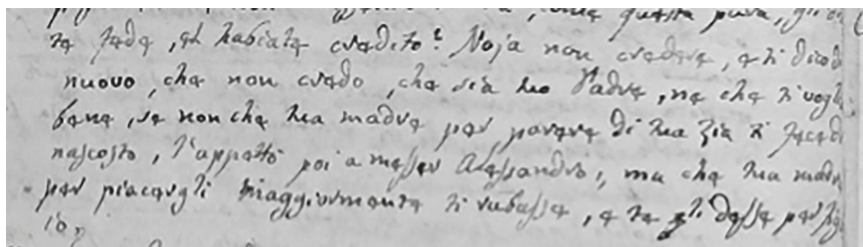 questa pura, gli
te fede, et habiate credito? Noja non credere, e ti dico di
nuovo, che non credo, che sia tuo Padre, ne che ti vogli
bene, se non che tua madre per parere di tua zia ti fece di
nascosto, l'appettò poi a messer Alessandro, ma che tua madre
per piacergli maggiormente ti rubasse, e te gli desse per fig
io,